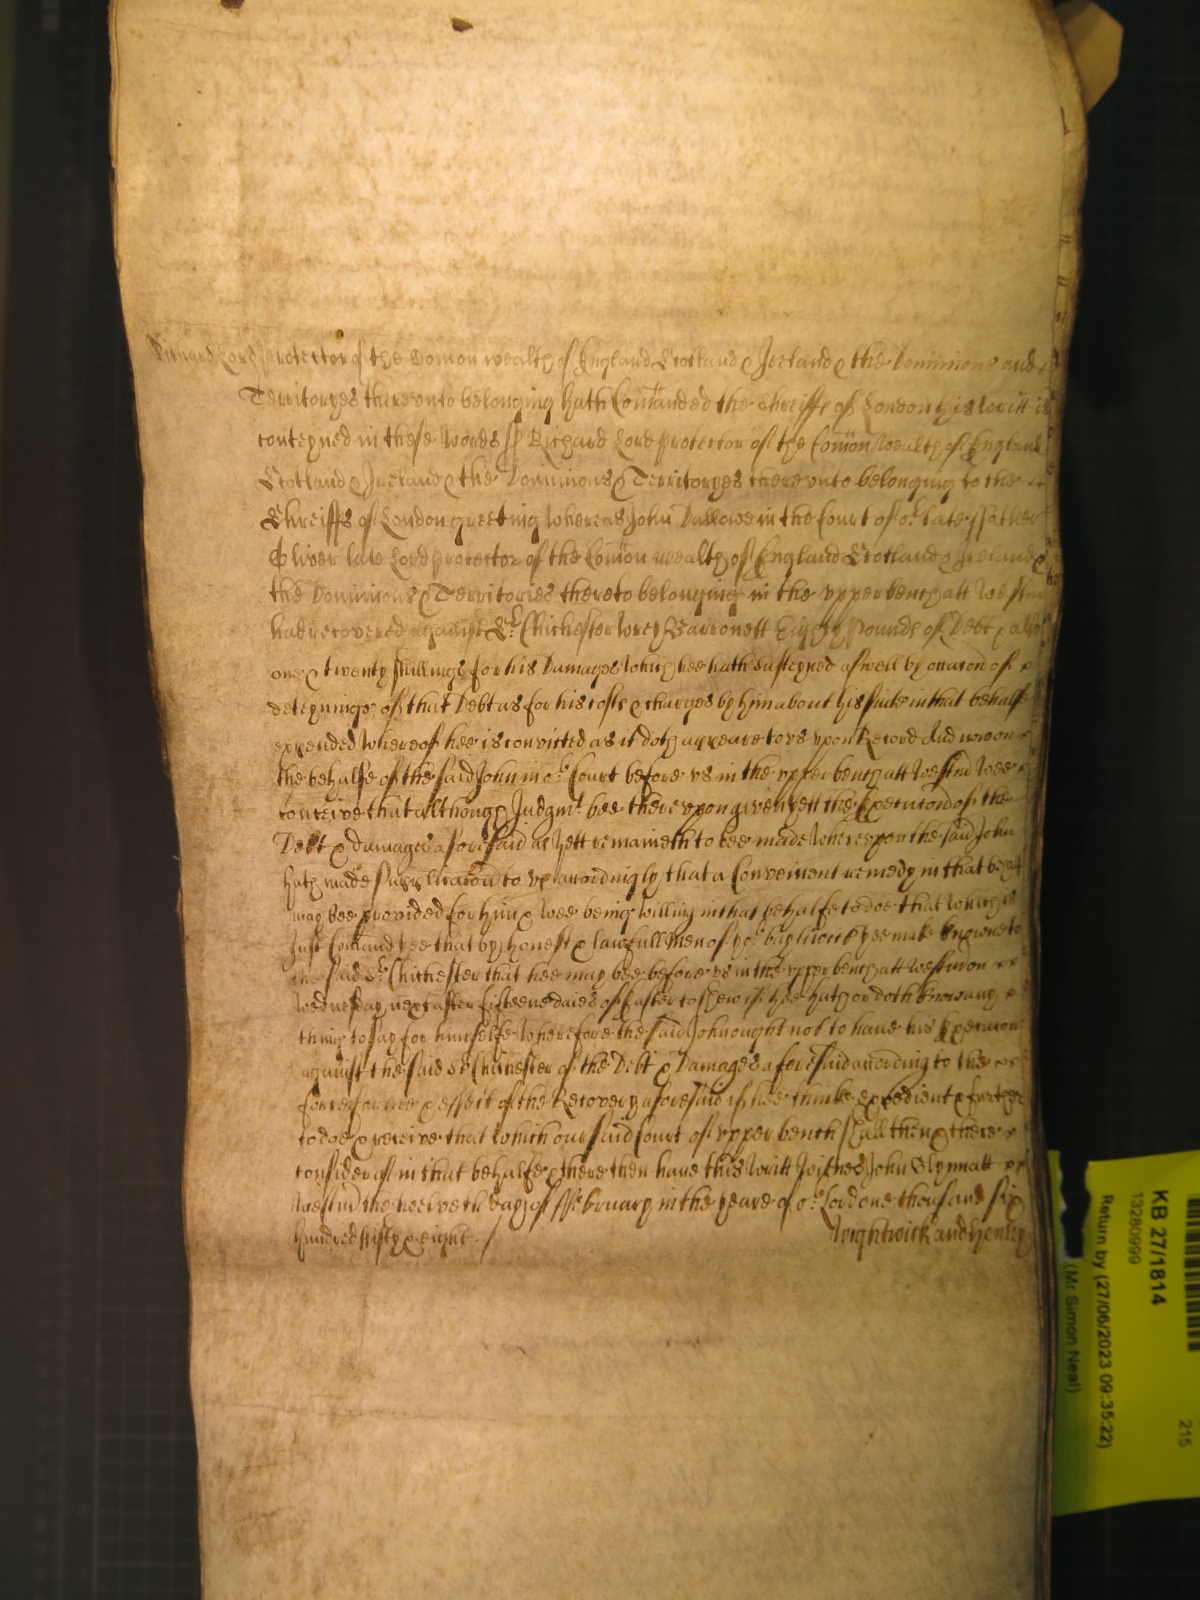 Richard Lord Protector of the Com̄on wealth of England Scotland & Ireland & the Dominions and
Territoryes thereonto belonging hath Com̄anded the Shreiffe of London his writt is
conteyned in these words ss Richard Lord Protector of the Com̄on Wealth of England
Scotland & Ireland & the Dominions & Territoryes thereunto belonging to the
Shreiffs of London greeting Whereas John Dallowe in the Court of or late Father
Oliver late Lord Protector of the Com̄on wealth of England Scotland & Ireland &
the Dominions & Territories thereto belonging in the upper bench att Westm̄
had recovered against Sr Chichester Wrey Barronett Eighty Pounds of Debt & also
one & twenty shillings for his Damages which hee hath susteyned as well by occac̄on of
deteyninge of that Debt as for his costs & charges by him about his suite in that behalfe
expended Whereof hee is convicted as it doth appeare to us upon Record And upon
the behalfe of the said John in or Court before us in the upper bench att Westm̄ Wee
conceive that although Judgmt bee there upon given yett the Execuc̄on of the
Debt & damages aforesaid as yett remaineth to bee made Whereupon the said John
hath made Supplicac̄on to us accordingly that a Convenient remedy in that behalf
may bee provided for him & wee being willing in that behalfe to doe that which is
Just Com̄and yee that by honest & lawfull Men of yor bayliwick yee make knowne to
the said Sr Chichester that hee may bee before us in the upper bench att Westm̄ on
Wednesday next after fifteene daies of Easter to shew if hee hath or doth know any
thing to say for himselfe Wherefore the said John ought not to have his Execuc̄on
against the said Sr Chichester of the Debt & Damages aforesaid according to the
force forme & effect of the Recovery aforesaid if hee thinke expedient & further
to doe & receive that which our said Court of upper bench shall then & there
consider of in that behalfe & there then have this Writt Witnes John Glynn att
Westm̄ the twelveth day of February in the yeare of or Lord one thousand six
hundred fifty & eight ./ Wightwick and Henley
KB 27/1814
13280999
Return by (27/06/2023 09:35:22)
(Mr Simon Neal)
215